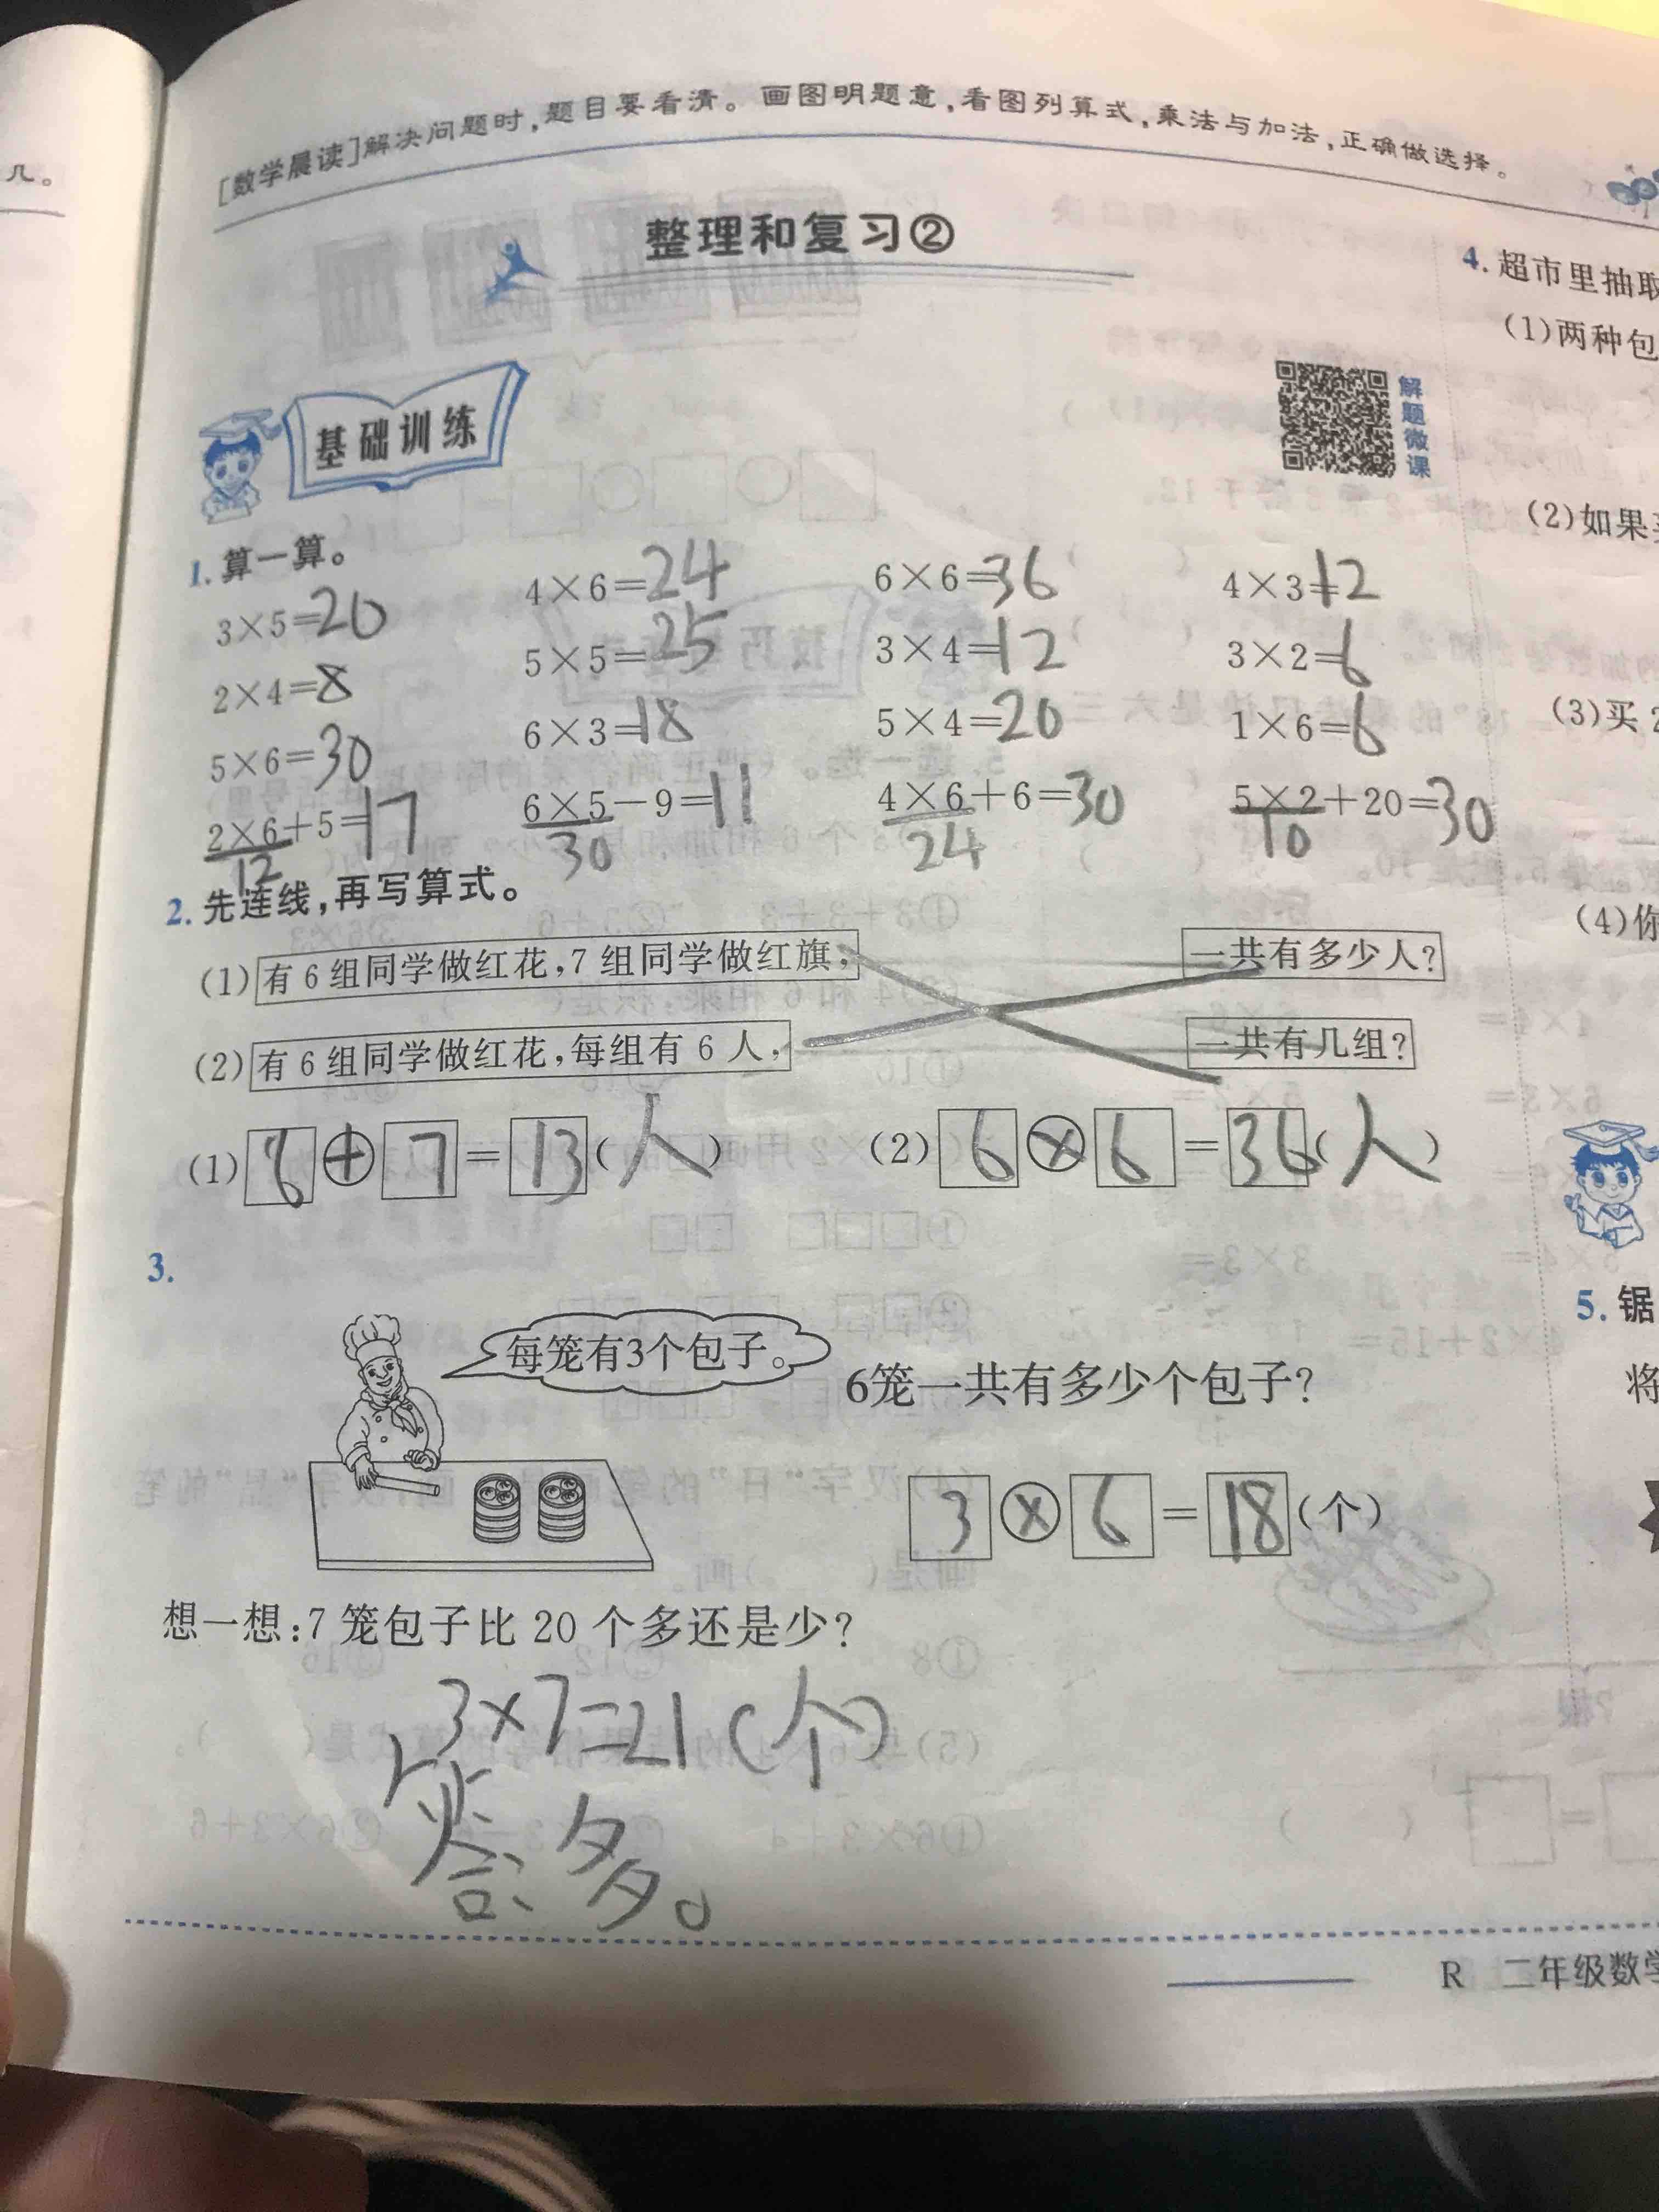 几。
[数学晨读]解决问题时,题目要看清。画图明题意,看图列算式,乘法与加法,正确做选择。
整理和复习②
基础训练
解题微课
1.算一算。
3×5=20 4×6=24 6×6=36 4×3=12
2×4=8 5×5=25 3×4=12 3×2=6
5×6=30 6×3=18 5×4=20 1×6=6
2×6+5=17 6×5-9=11 4×6+6=30 5×2+20=30
12 30 24 10
2.先连线,再写算式。
(1)有6组同学做红花,7组同学做红旗, 一共有多少人?
(2)有6组同学做红花,每组有6人, 一共有几组?
(1)6+7=13(人) (2)6×6=36(人)
3.
每笼有3个包子。
6笼一共有多少个包子?
3×6=18(个)
想一想:7笼包子比20个多还是少?
3×7=21(个)
答:多。
R 二年级数学
4.超市里抽取
(1)两种包
(2)如果
(3)买2
(4)你
5.锯
将